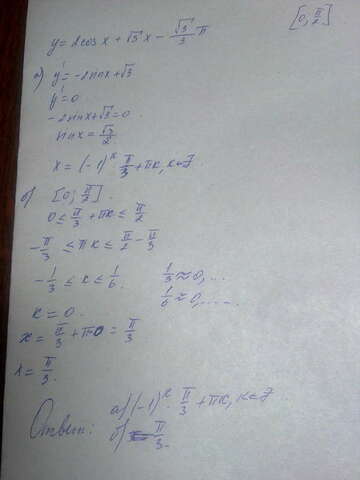 y=2cosx+√3x-√3/3 π [0; π/2]
а) y'=-2sinx+√3
y'=0
-2sinx+√3=0
sinx=√3/2
x=(-1)^k π/3+πk, k∈Z
б) [0; π/2].
0≤π/3+πk≤π/2
-π/3≤πk≤π/2-π/3
-1/3≤k≤1/6. 1/3≈0,...
1/6≈0,....
k=0.
x=π/3+π·0=π/3
x=π/3.
Ответ: а)(-1)^k·π/3+πk, k∈Z
б) π/3.